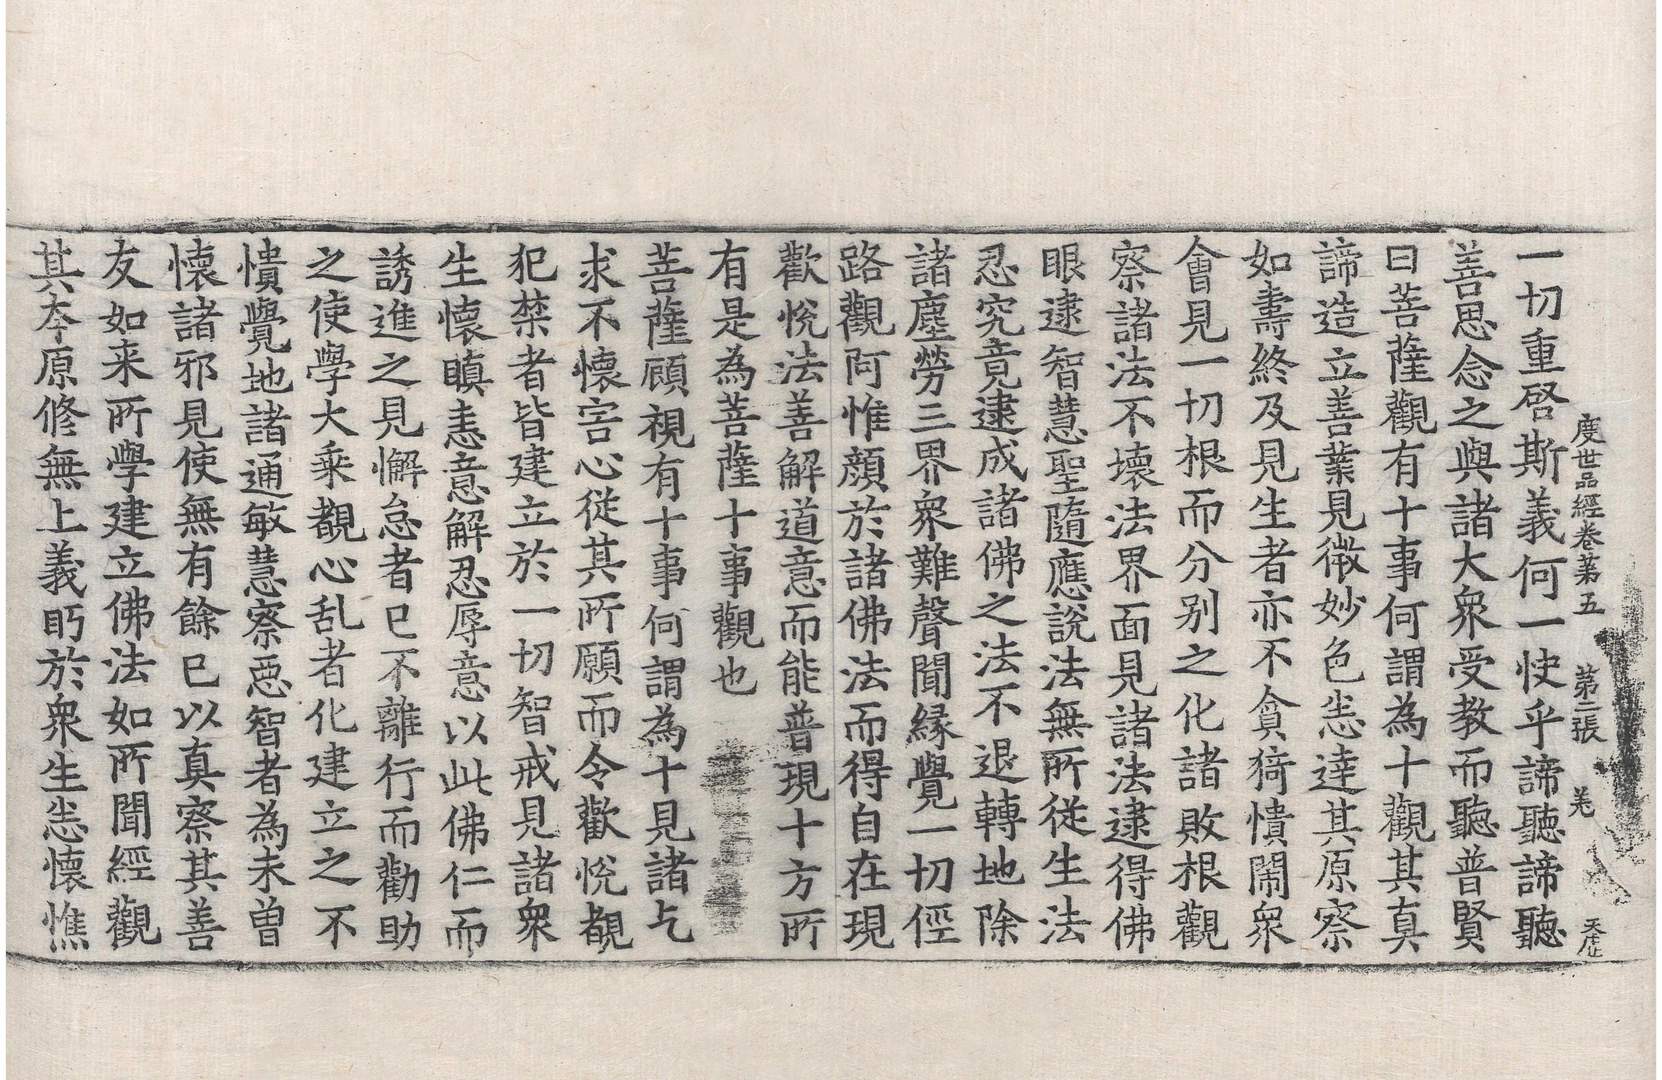 度世品經卷苐五　第二張　羌
一切重啓斯義何一快乎諦聽諦聽
善思念之與諸大衆受教而聽普賢
曰菩薩觀有十事何謂為十觀其真
諦造立善業見微妙色悉達其原察
如壽終及見生者亦不貪猗憒閙衆
會見一切根而分別之化諸敗根觀
察諸法不壞法界面見諸法逮得佛
眼逮智慧聖隨應說法無所從生法
忍究竟逮成諸佛之法不退轉地除
諸塵勞三界衆難聲聞緣覺一切徑
路觀阿惟顔於諸佛法而得自在現
歡悅法善解道意而能普現十方所
有是為菩薩十事觀也
菩薩顧視有十事何謂為十見諸乞
求不懷害心從其所願而令歡悅覩
犯禁者皆建立於一切智戒見諸衆
生懷瞋恚意解忍辱意以此佛仁而
誘進之見懈怠者已不離行而勸助
之使學大乘覩心乱者化建立之不
憒覺地諸通敏慧察惡智者為未曽
懷諸邪見使無有餘已以真察其善
友如来所學建立佛法如所聞經觀
其夲原修無上義眄於衆生悉懷憔